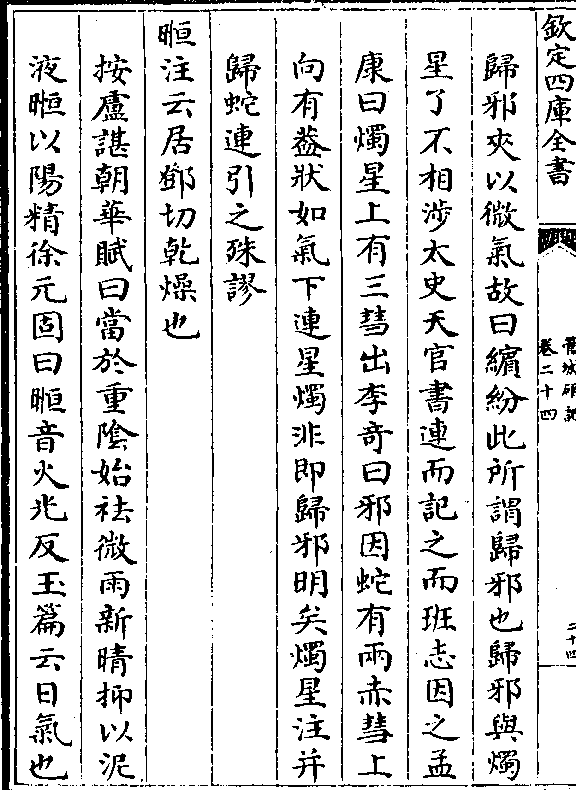 欽定四庫全書
卷二十四
二十四
歸邪夾以微氣故曰繽紛此所謂歸邪也歸邪與燭
星了不相涉太史天官書連而記之而班志因之孟
康曰燭星上有三彗出李奇曰邪因蛇有兩赤彗上
向有葢狀如氣下連星燭非即歸邪明矣燭星注并
歸蛇連引之殊謬
暅注云居鄧切乾燥也
按盧諶朝華賦曰當於重陰始祛微雨新晴抑以泥
液暅以陽精徐元固曰暅音火兆反玉篇云日氣也